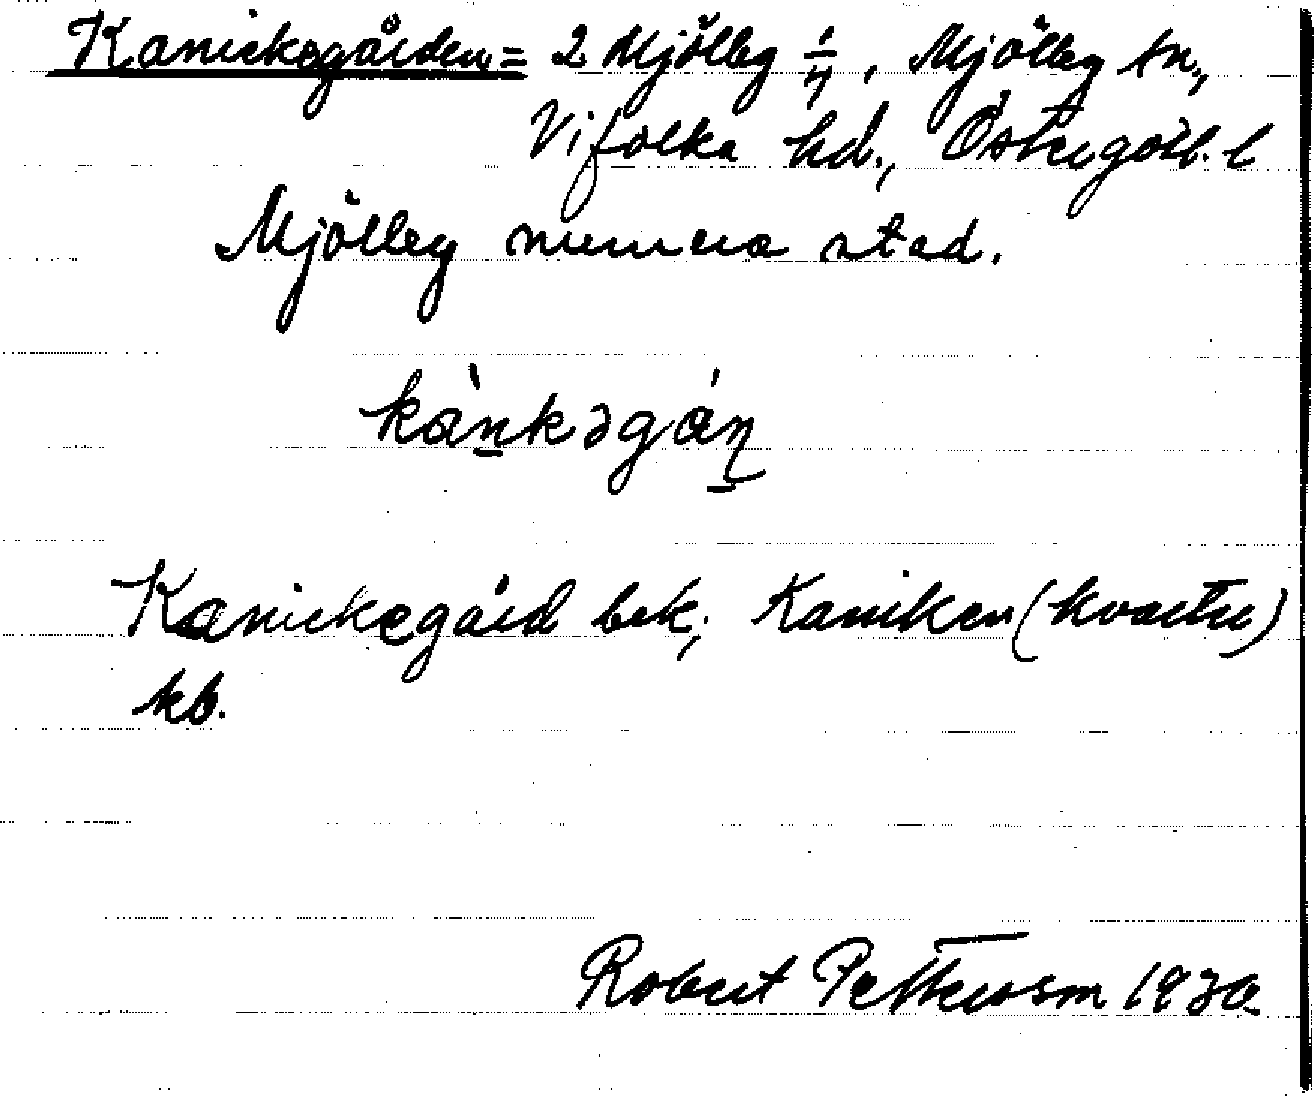 Kanickegården = 2 Mjölby 1/4, Mjölby sn,
Vifolka hd., Östergötl. l
Mjölby numera stad.
kànkəgán
Kanickegård bek; Kaniken (kvarter)
kb.
Robert Pettersson 1930